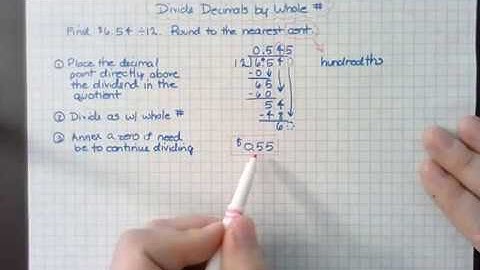 Divide Decimals by Whole #
Find $6.54 ÷ 12. Round to the nearest cent.
hundredths
① Place the decimal
point directly above
the dividend in the
quotient
② Divide as w/ whole #
③ Annex a zero if need
be to continue dividing
0.545
12)6.54
-06
65
-60
54
-48
6
$0.55